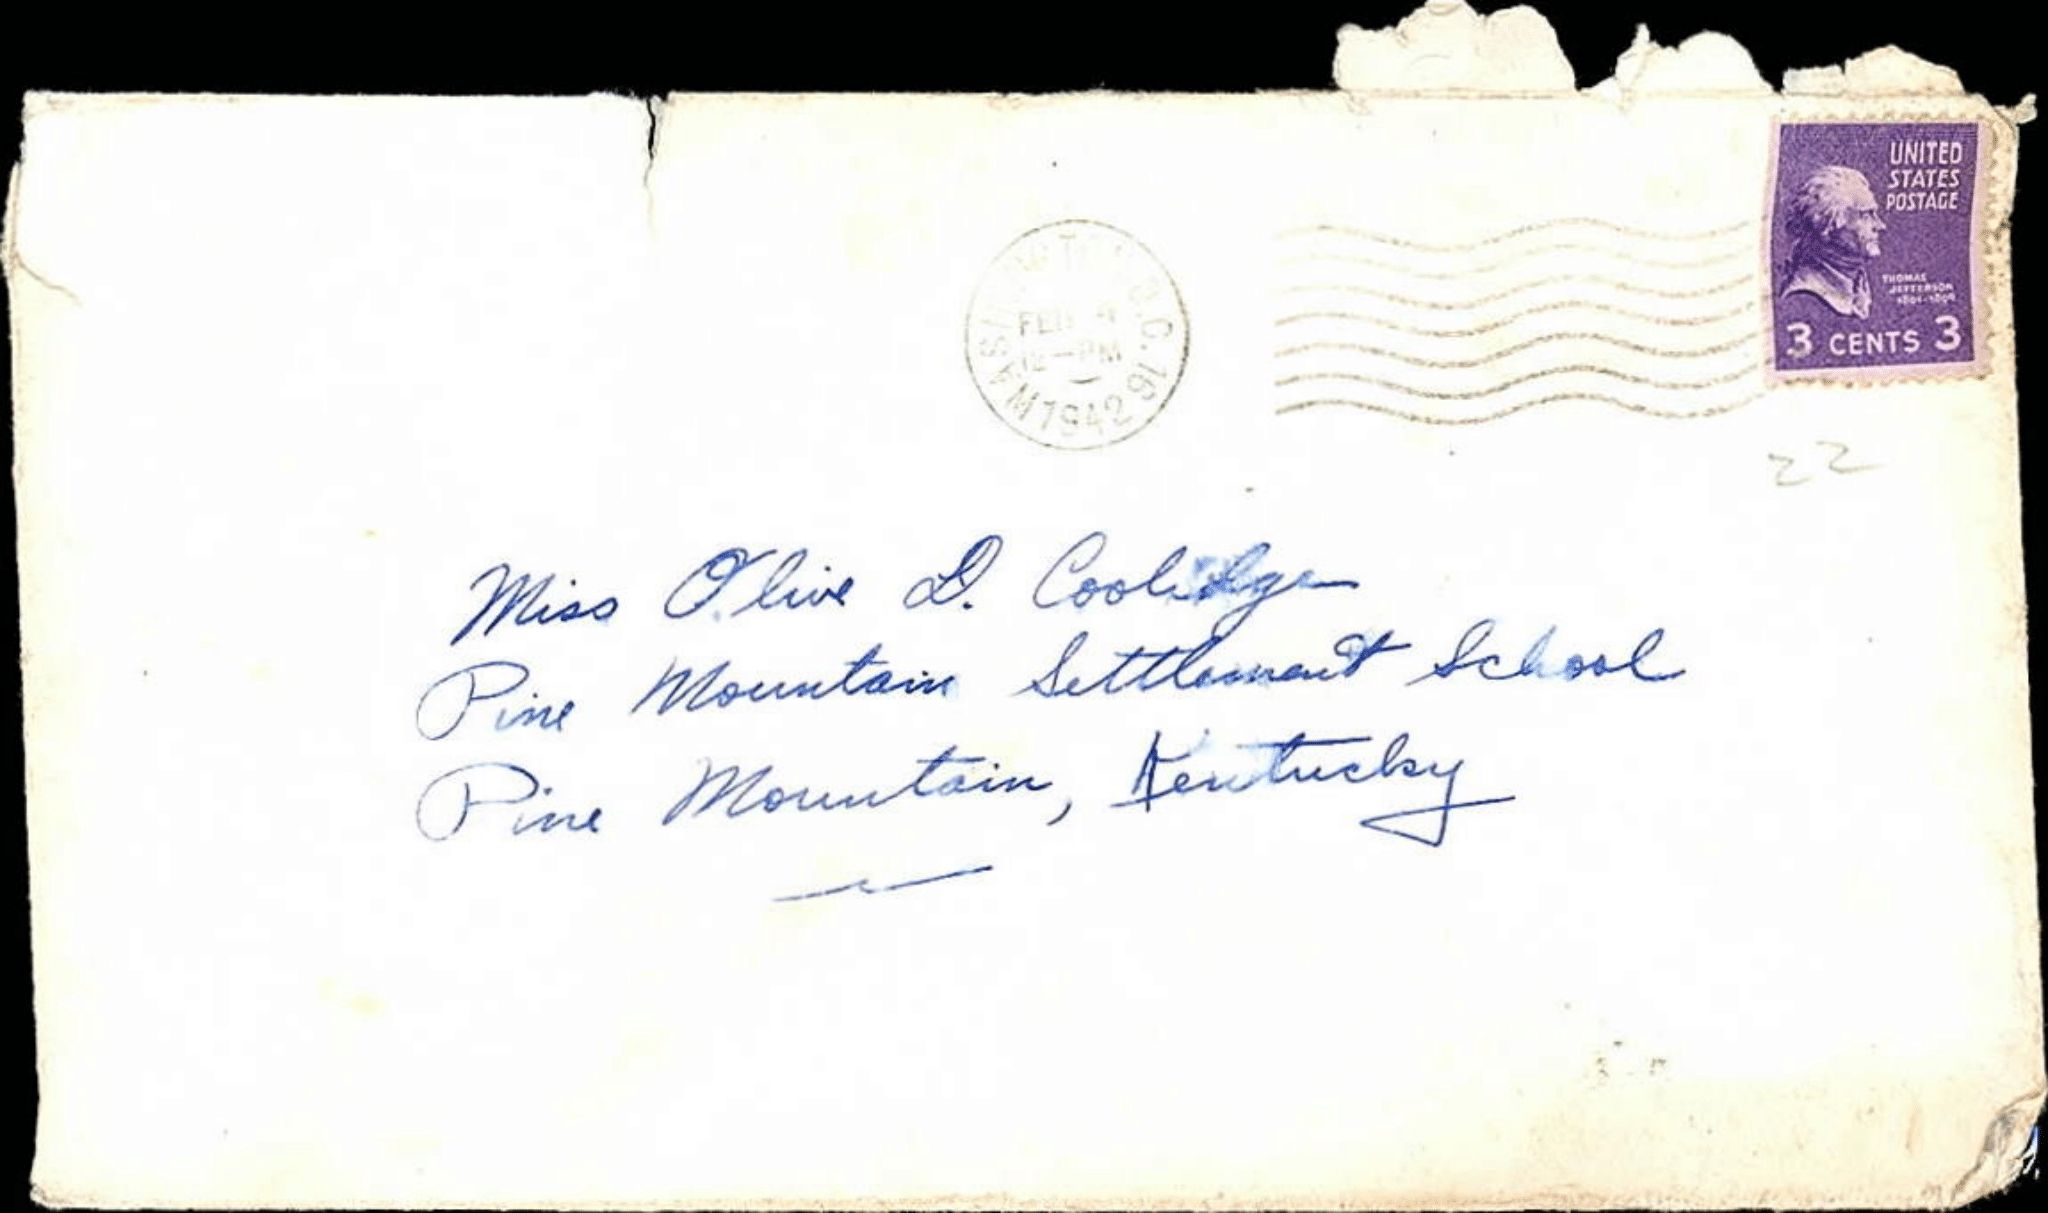 UNITED
STATES
POSTAGE
THOMAS
JEFFERSON
1801-1809
3 CENTS 3
WASHINGTON, D.C. 16
FEB 4
12-PM
1942
22
Miss Olive D. Coolidge
Pine Mountain Settlement School
Pine Mountain, Kentucky